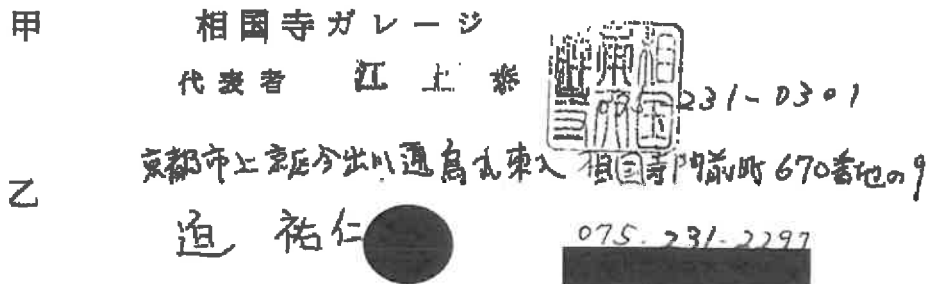 甲 相国寺ガレージ
代表者 江上 泰
231-0301
京都市上京区今出川通烏丸東入 相国寺門前町670番地の9
乙
迫 祐仁
075-231-2297